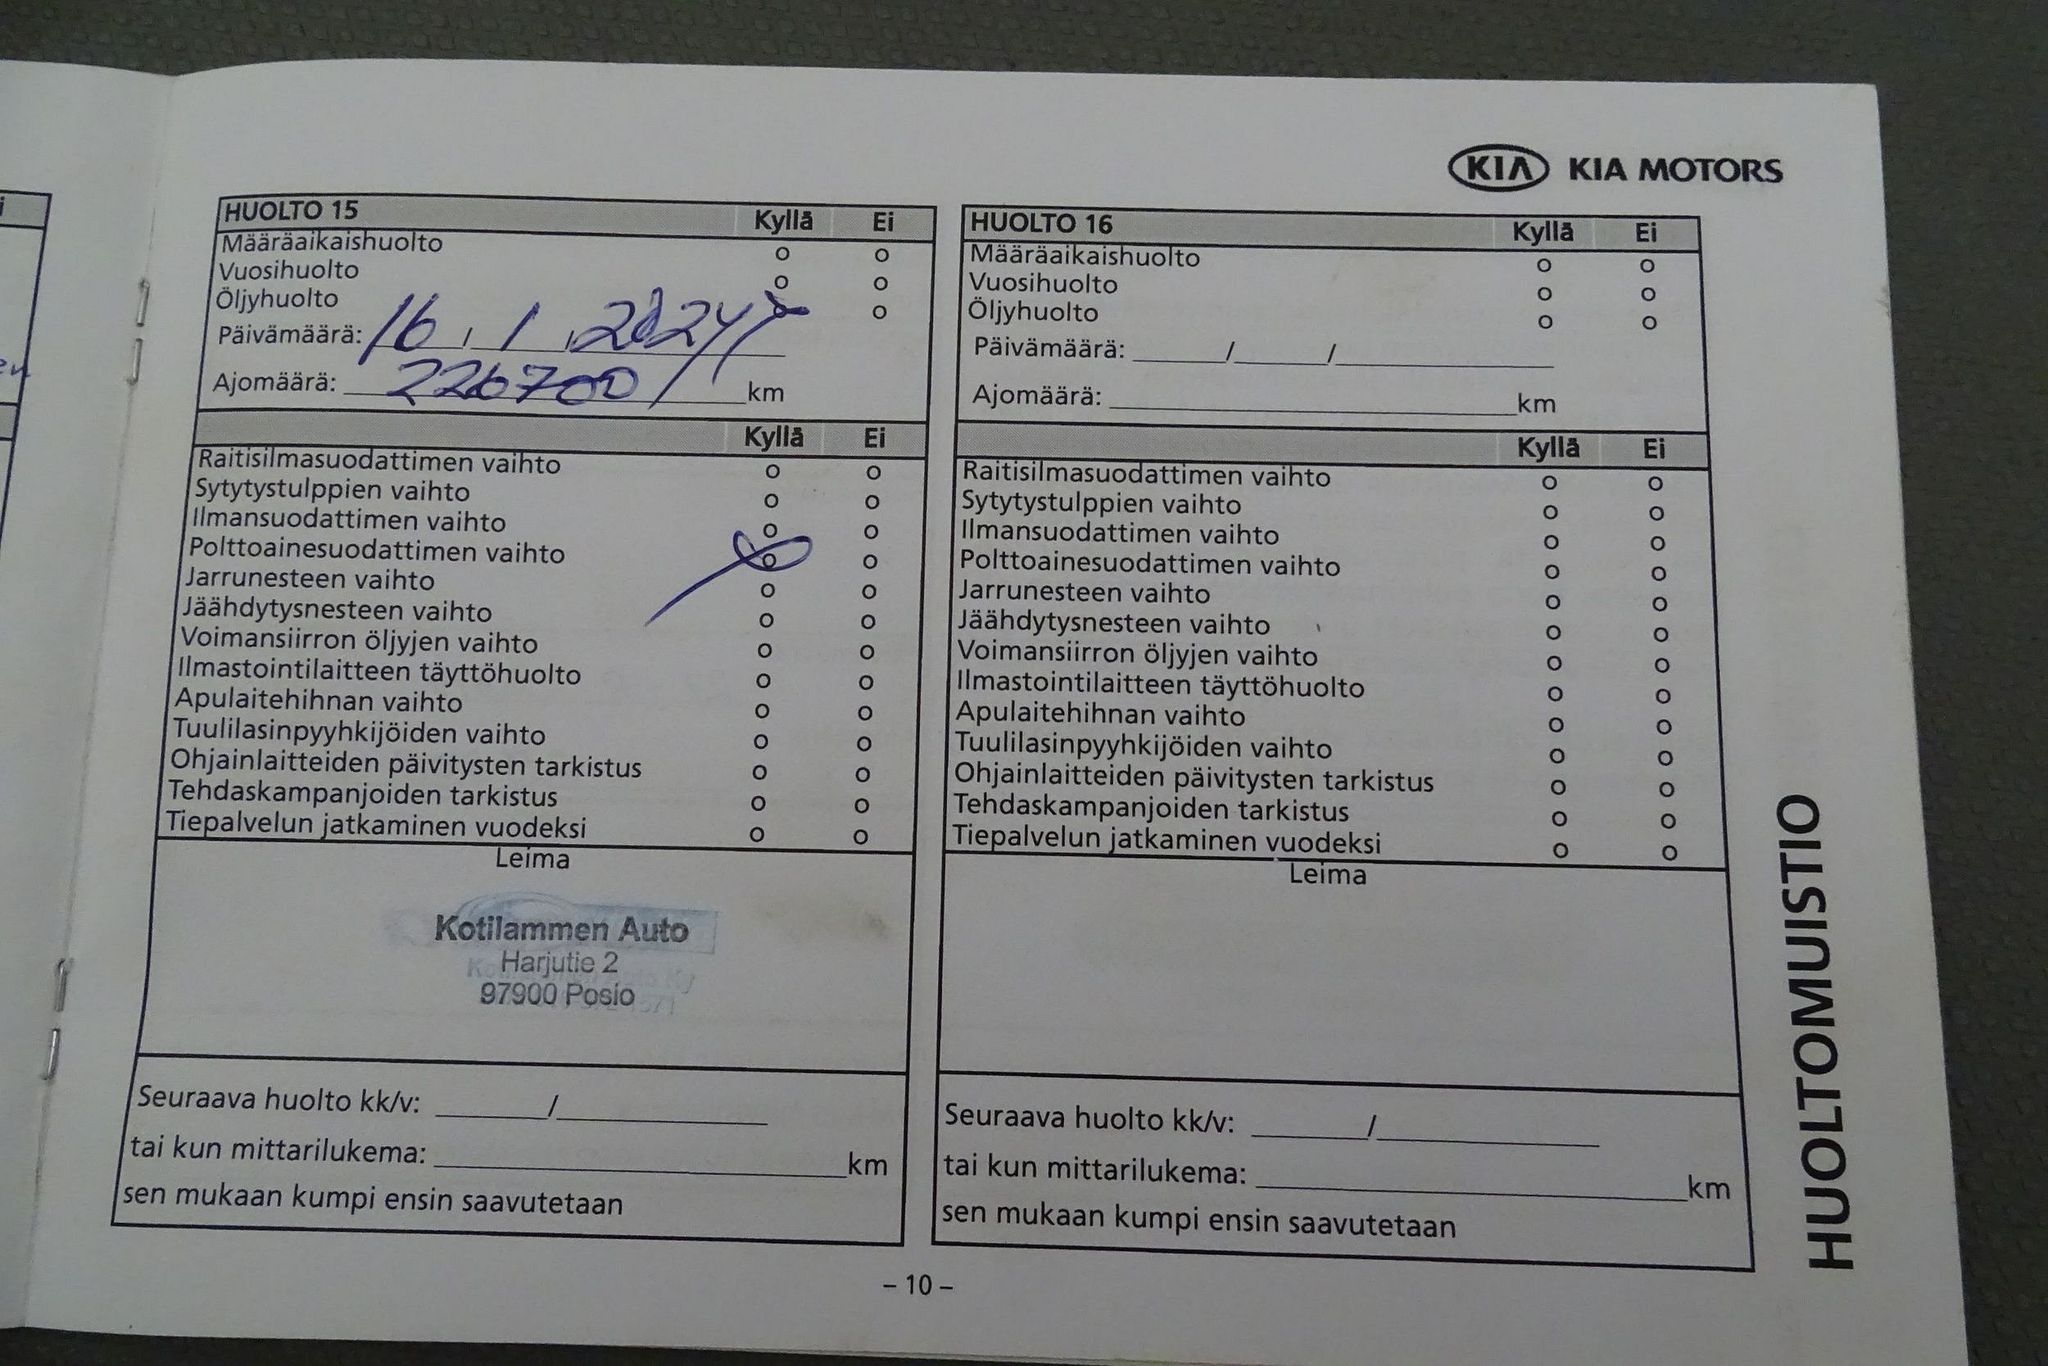 KIA KIA MOTORS
HUOLTO 15 Kyllä Ei
Määräaikaishuolto o o
Vuosihuolto o o
Öljyhuolto o
Päivämäärä: 16 , 1 , 2024
Ajomäärä: 226700 km
Kyllä Ei
Raitisilmasuodattimen vaihto o o
Sytytystulppien vaihto o o
Ilmansuodattimen vaihto o o
Polttoainesuodattimen vaihto o o
Jarrunesteen vaihto o o
Jäähdytysnesteen vaihto o o
Voimansiirron öljyjen vaihto o o
Ilmastointilaitteen täyttöhuolto o o
Apulaitehihnan vaihto o o
Tuulilasinpyyhkijöiden vaihto o o
Ohjainlaitteiden päivitysten tarkistus o o
Tehdaskampanjoiden tarkistus o o
Tiepalvelun jatkaminen vuodeksi o o
Leima
Kotilammen Auto
Harjutie 2
97900 Posio
Seuraava huolto kk/v: ______/____________
tai kun mittarilukema: ________________________ km
sen mukaan kumpi ensin saavutetaan
HUOLTO 16 Kyllä Ei
Määräaikaishuolto o o
Vuosihuolto o o
Öljyhuolto o o
Päivämäärä: ______/______/____________
Ajomäärä: ________________________ km
Kyllä Ei
Raitisilmasuodattimen vaihto o o
Sytytystulppien vaihto o o
Ilmansuodattimen vaihto o o
Polttoainesuodattimen vaihto o o
Jarrunesteen vaihto o o
Jäähdytysnesteen vaihto o o
Voimansiirron öljyjen vaihto o o
Ilmastointilaitteen täyttöhuolto o o
Apulaitehihnan vaihto o o
Tuulilasinpyyhkijöiden vaihto o o
Ohjainlaitteiden päivitysten tarkistus o o
Tehdaskampanjoiden tarkistus o o
Tiepalvelun jatkaminen vuodeksi o o
Leima
Seuraava huolto kk/v: ______/____________
tai kun mittarilukema: ________________________ km
sen mukaan kumpi ensin saavutetaan
HUOLTOMUISTIO
– 10 –